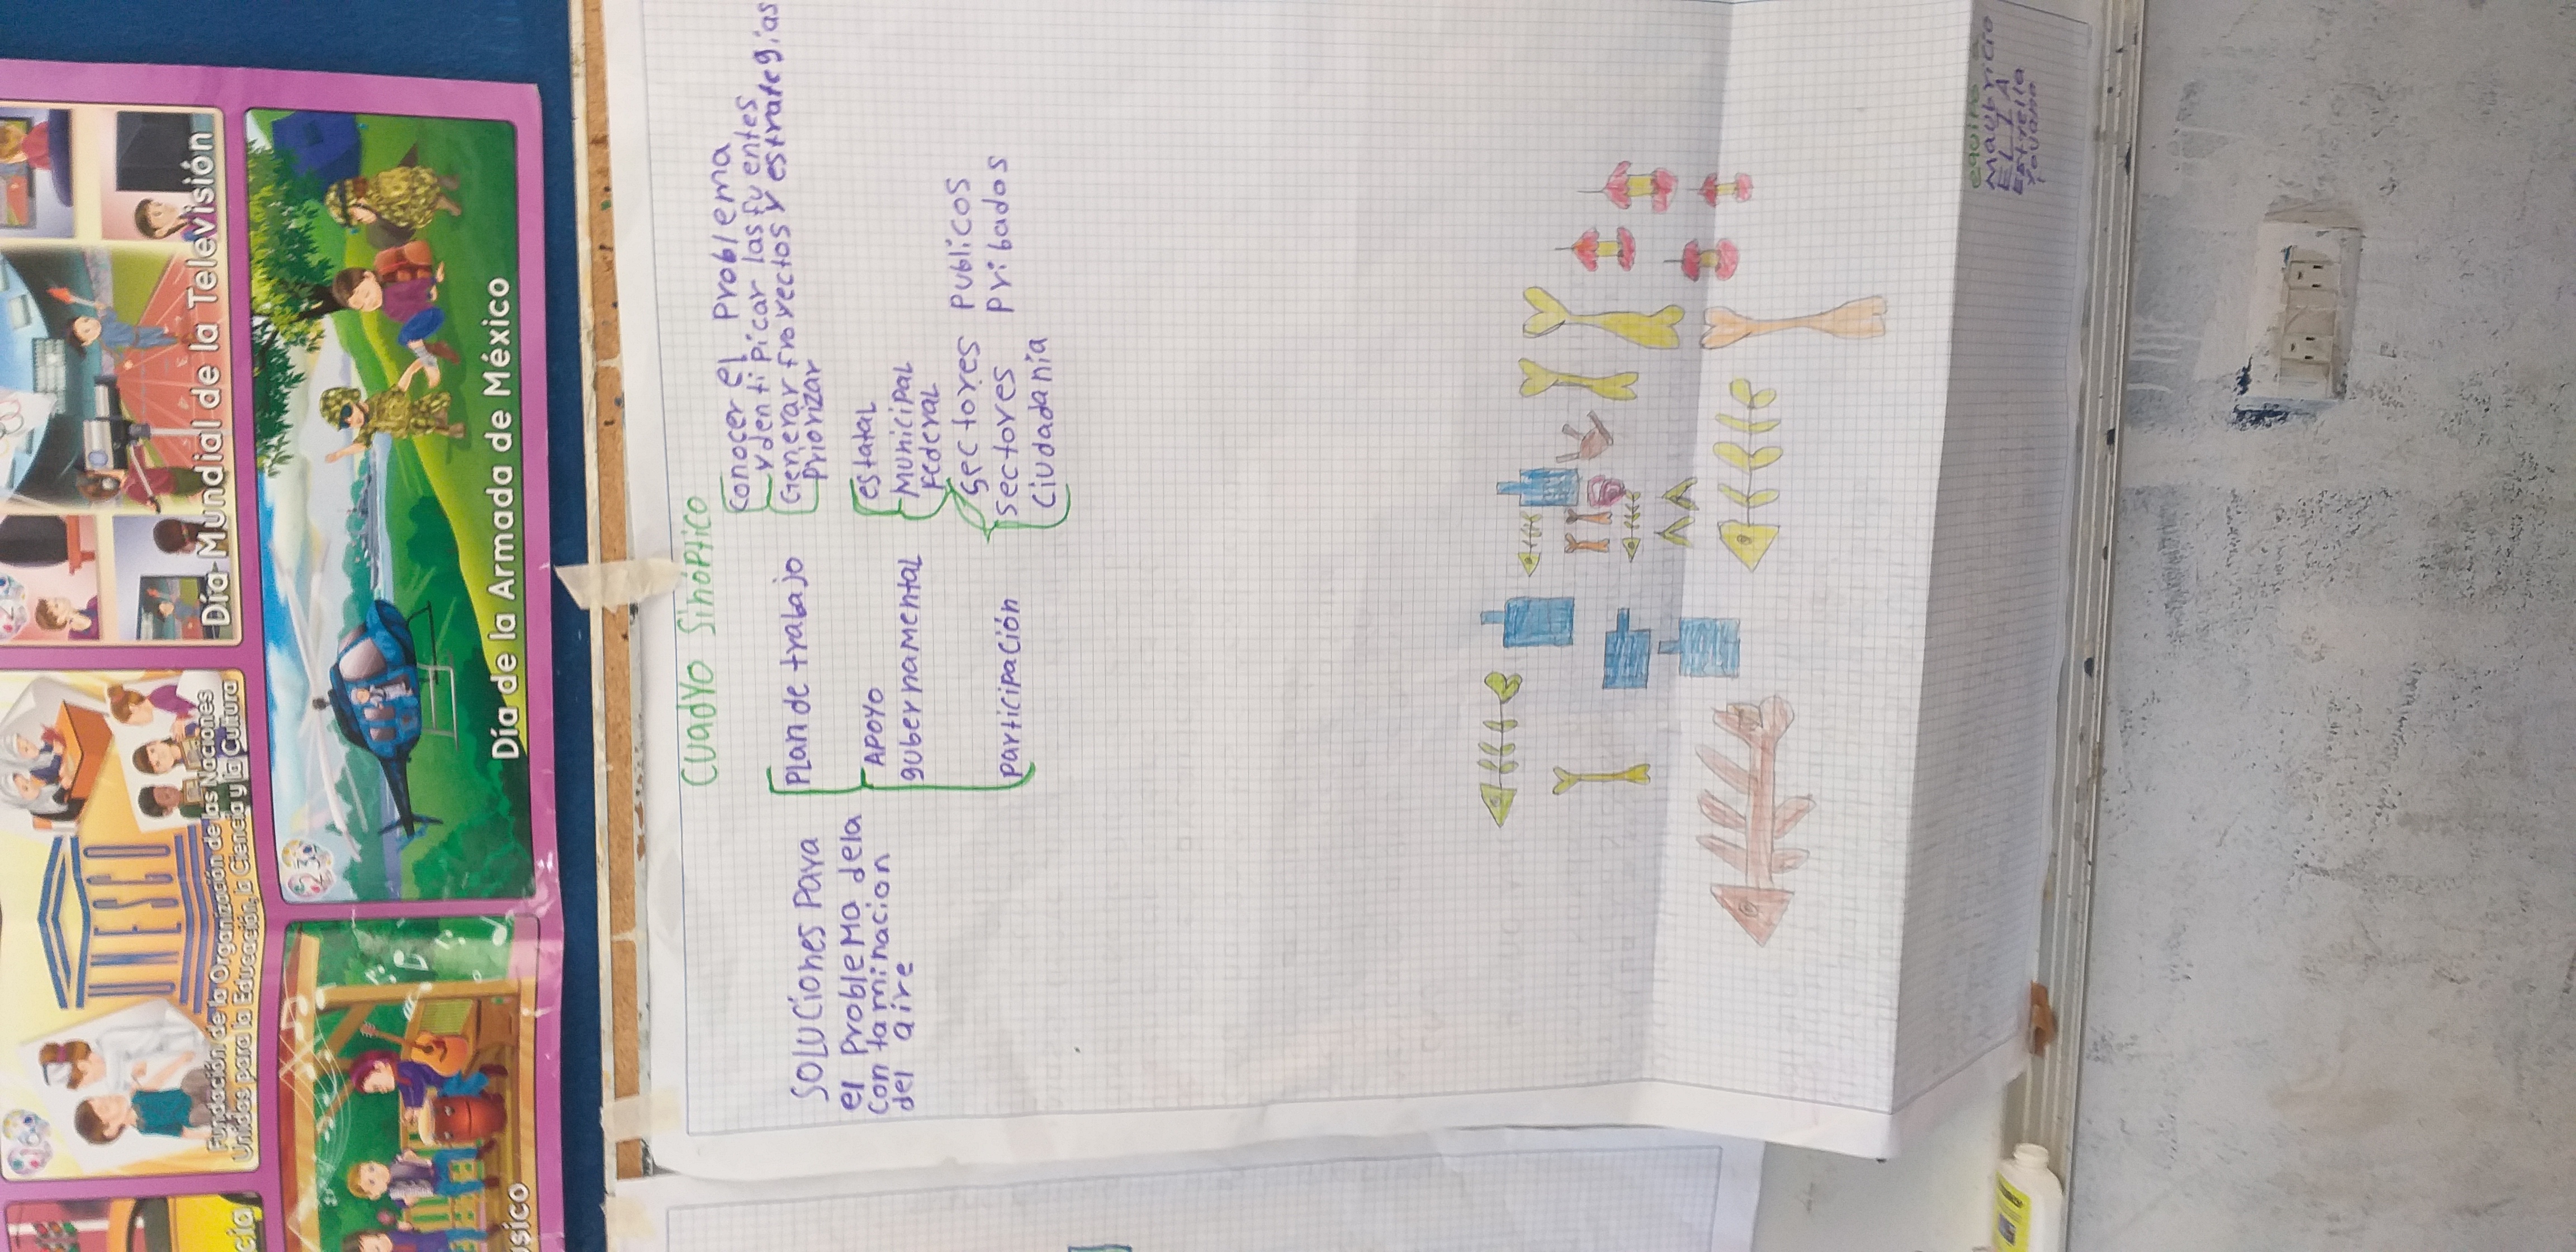 Día Mundial de la Televisión
UNESCO
Fundación de la Organización de las Naciones
Unidas para la Educación, la Ciencia y la Cultura
16
23
Día de la Armada de México
úsico
cia
Cuadro Sinóptico
SOLUCiones Para
el Problema dela
Contaminacion
del aire
Plan de trabajo
Conocer el Problema
ydentipicar las fuentes
Generar Proyectos y estrategias
Priorizar
APOYO
gubernamental
estatal
Municipal
Federal
Participación
Sectores Publicos
Sectores Pribados
Ciudadanía
equipo
Mauricio
Estrella